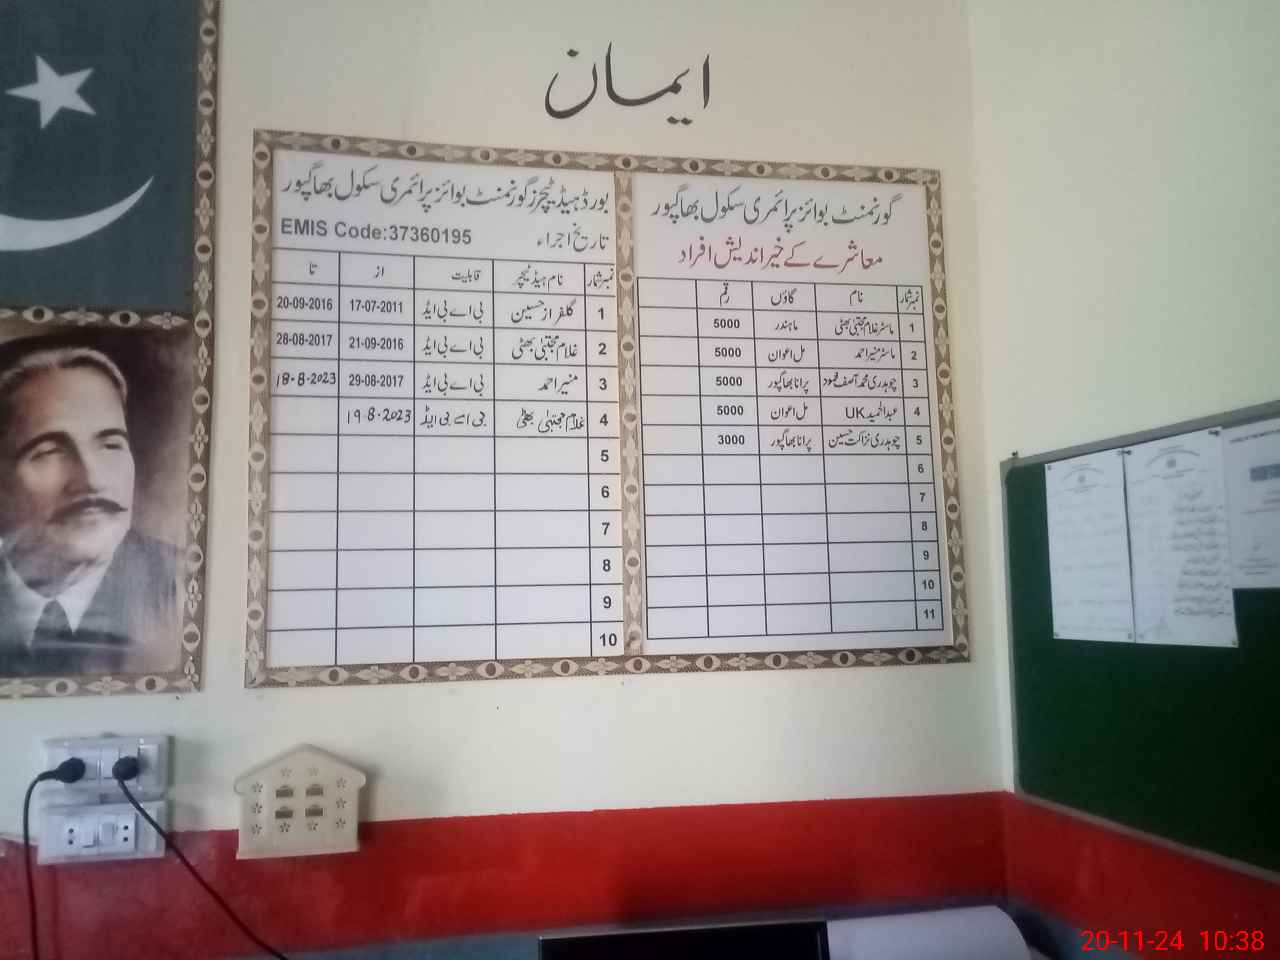 ایمان
بورڈ ہیڈ ٹیچرز گورنمنٹ بوائز پرائمری سکول بھاگپور
تاریخ اجراء EMIS Code:37360195
نمبر شمار نام ہیڈ ٹیچر قابلیت از تا
1 گلفراز حسین بی اے بی ایڈ 17-07-2011 20-09-2016
2 غلام مجتبیٰ بھٹی بی اے بی ایڈ 21-09-2016 28-08-2017
3 منیر احمد بی اے بی ایڈ 29-08-2017 18-8-2023
4 غلام مجتبیٰ بھٹی بی اے بی ایڈ 19-8-2023
5
6
7
8
9
10
گورنمنٹ بوائز پرائمری سکول بھاگپور
معاشرے کے خیر اندیش افراد
نمبر شمار نام گاؤں رقم
1 ماسٹر غلام مجتبیٰ بھٹی ماہندر 5000
2 ماسٹر منیر احمد مل اعوان 5000
3 چوہدری محمد آصف محمود پرانا بھاگپور 5000
4 عبدالحمید UK مل اعوان 5000
5 چوہدری نزاکت حسین پرانا بھاگپور 3000
6
7
8
9
10
11
20-11-24 10:38